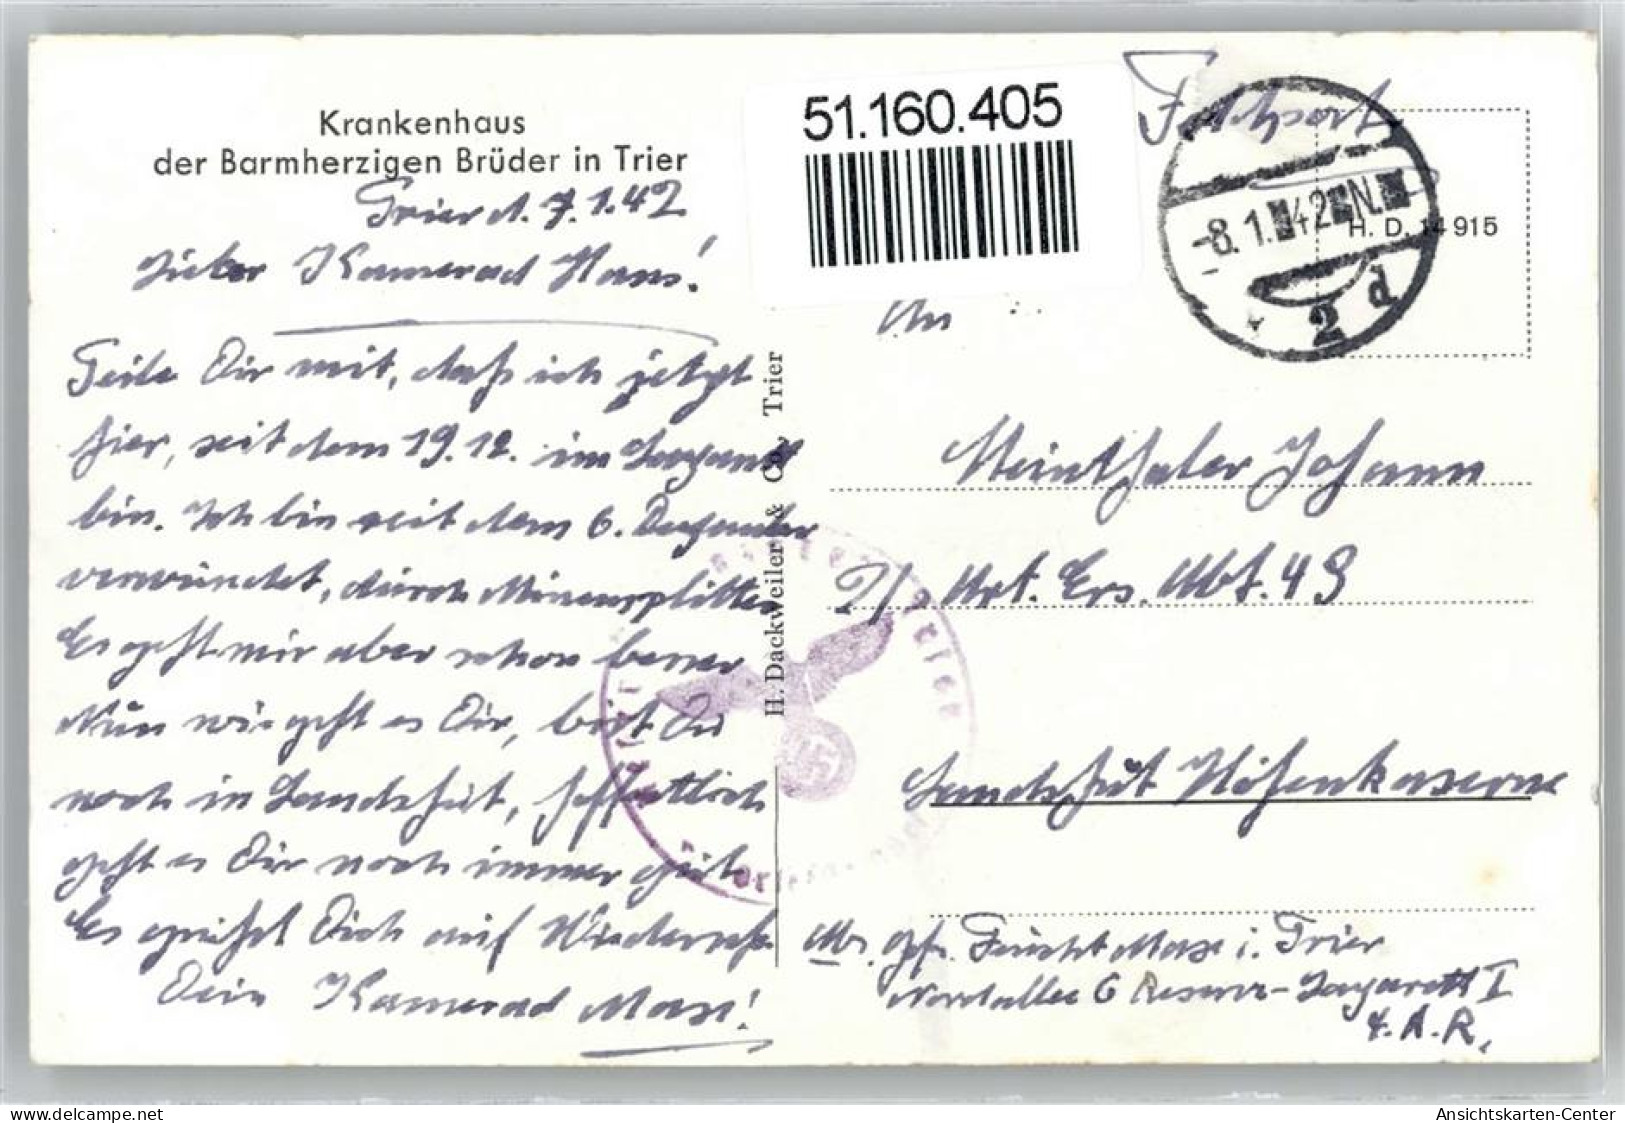 Krankenhaus
der Barmherzigen Brüder in Trier
Trier d. 7.1.42
Lieber Kamerad Hans!
Teile Dir mit, daß ich jetzt
hier, seit dem 19.12. im Lazarett
bin. Ich bin seit dem 6. Dezember
verwundet, durch Minensplitter
Es geht mir aber schon besser
Nun wie geht es Dir, bist Du
noch in Landshut, hoffentlich
geht es Dir noch immer gut
Es grüßt Dich auf Wiederseh.
Dein Kamerad Max!
H. Dackweiler & Co., Trier
51.160.405
Feldpost
-8.1.42.N.
2 d
H. D. 14 915
An
Meinthaler Johann
2/ Art. Ers. Abt. 49
Landshut Höhenkaserne
Abs. Gfr. Feucht Max i. Trier
Nordallee 6 Reserve-Lazarett I
4. A. R.
delcampe.net
Ansichtskarten-Center